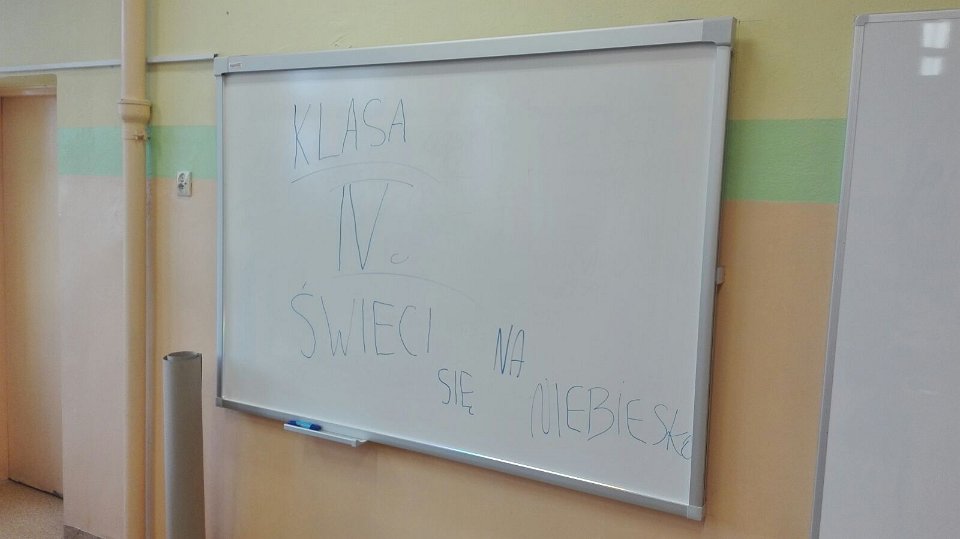 KLASA
IV.
ŚWIECI
SIĘ
NA
NIEBIESKO